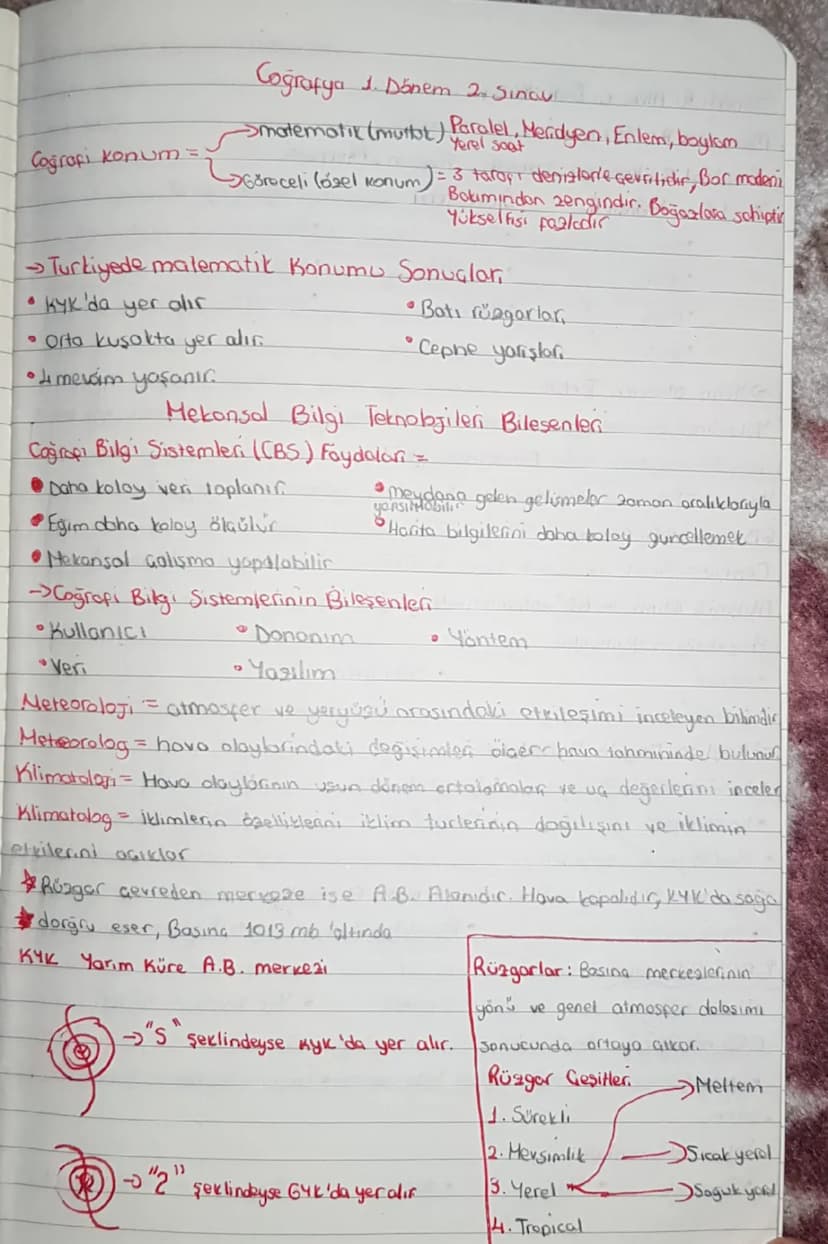 Coğrafya 1. Dönem 2. Sınav
Coğrafi konum =
→matematik (mutlat) Paralel, Meridyen, Enlem, boylam
Yerel saat
→Göreceli (özel konum) = 3 tarafı denizlerle çevrilidir, Bor madeni
Bakımından zengindir. Boğazlara sahiptir
Yükseltisi fazladır
→ Turkiyede matematik Konumu Sonuçları
• KYK'da yer alır
• Batı rüzgarları
• Orta kuşakta yer alır.
• Cephe yağışları
• 4 mevsim yaşanır.
Mekansal Bilgi Teknolojileri Bileşenleri
Coğrafi Bilgi Sistemleri (CBS) Faydaları =
• Daha kolay veri toplanır.
• meydana gelen gelişmeler zaman aralıklarıyla
yansıtılabilir
• Egim daha kolay ölçülür
• Harita bilgilerini daha kolay guncellemek
• Mekansal çalışma yapılabilir
→Coğrafi Bilgi Sistemlerinin Bileşenleri
• Kullanıcı
• Donanım
• Yöntem
• Veri
• Yazılım
Meteoroloji = atmosfer ve yeryüzü arasındaki etkileşimi inceleyen bilimdir
Meteorolog = hava olaylarındaki değişimleri ölçer hava tahmininde bulunur
Klimatoloji = Hava olaylarının uzun dönem ortalamaları ve uç değerlerini inceler
Klimatolog = iklimlerin özelliklerini iklim turlerinin dağılışını ve iklimin
etkilerini açıklar
★ Rüzgar çevreden merkeze ise A.B. Alanıdır. Hava kapalıdır, KYK'da sağa
★ dorğru eser, Basınç 1013 mb 'altında
KYK Yarım Küre A.B. merkezi
→ "S" şeklindeyse KYK'da yer alır.
→ "2" şeklindeyse GYK'da yer alır
Rüzgarlar: Basınç merkezlerinin
yönü ve genel atmosfer dolaşımı
sonucunda ortaya çıkar.
Rüzgar Çeşitleri
→Meltem
1. Sürekli
2. Mevsimlik
→Sıcak yerel
3. Yerel
→Soğuk yerel
4. Tropical